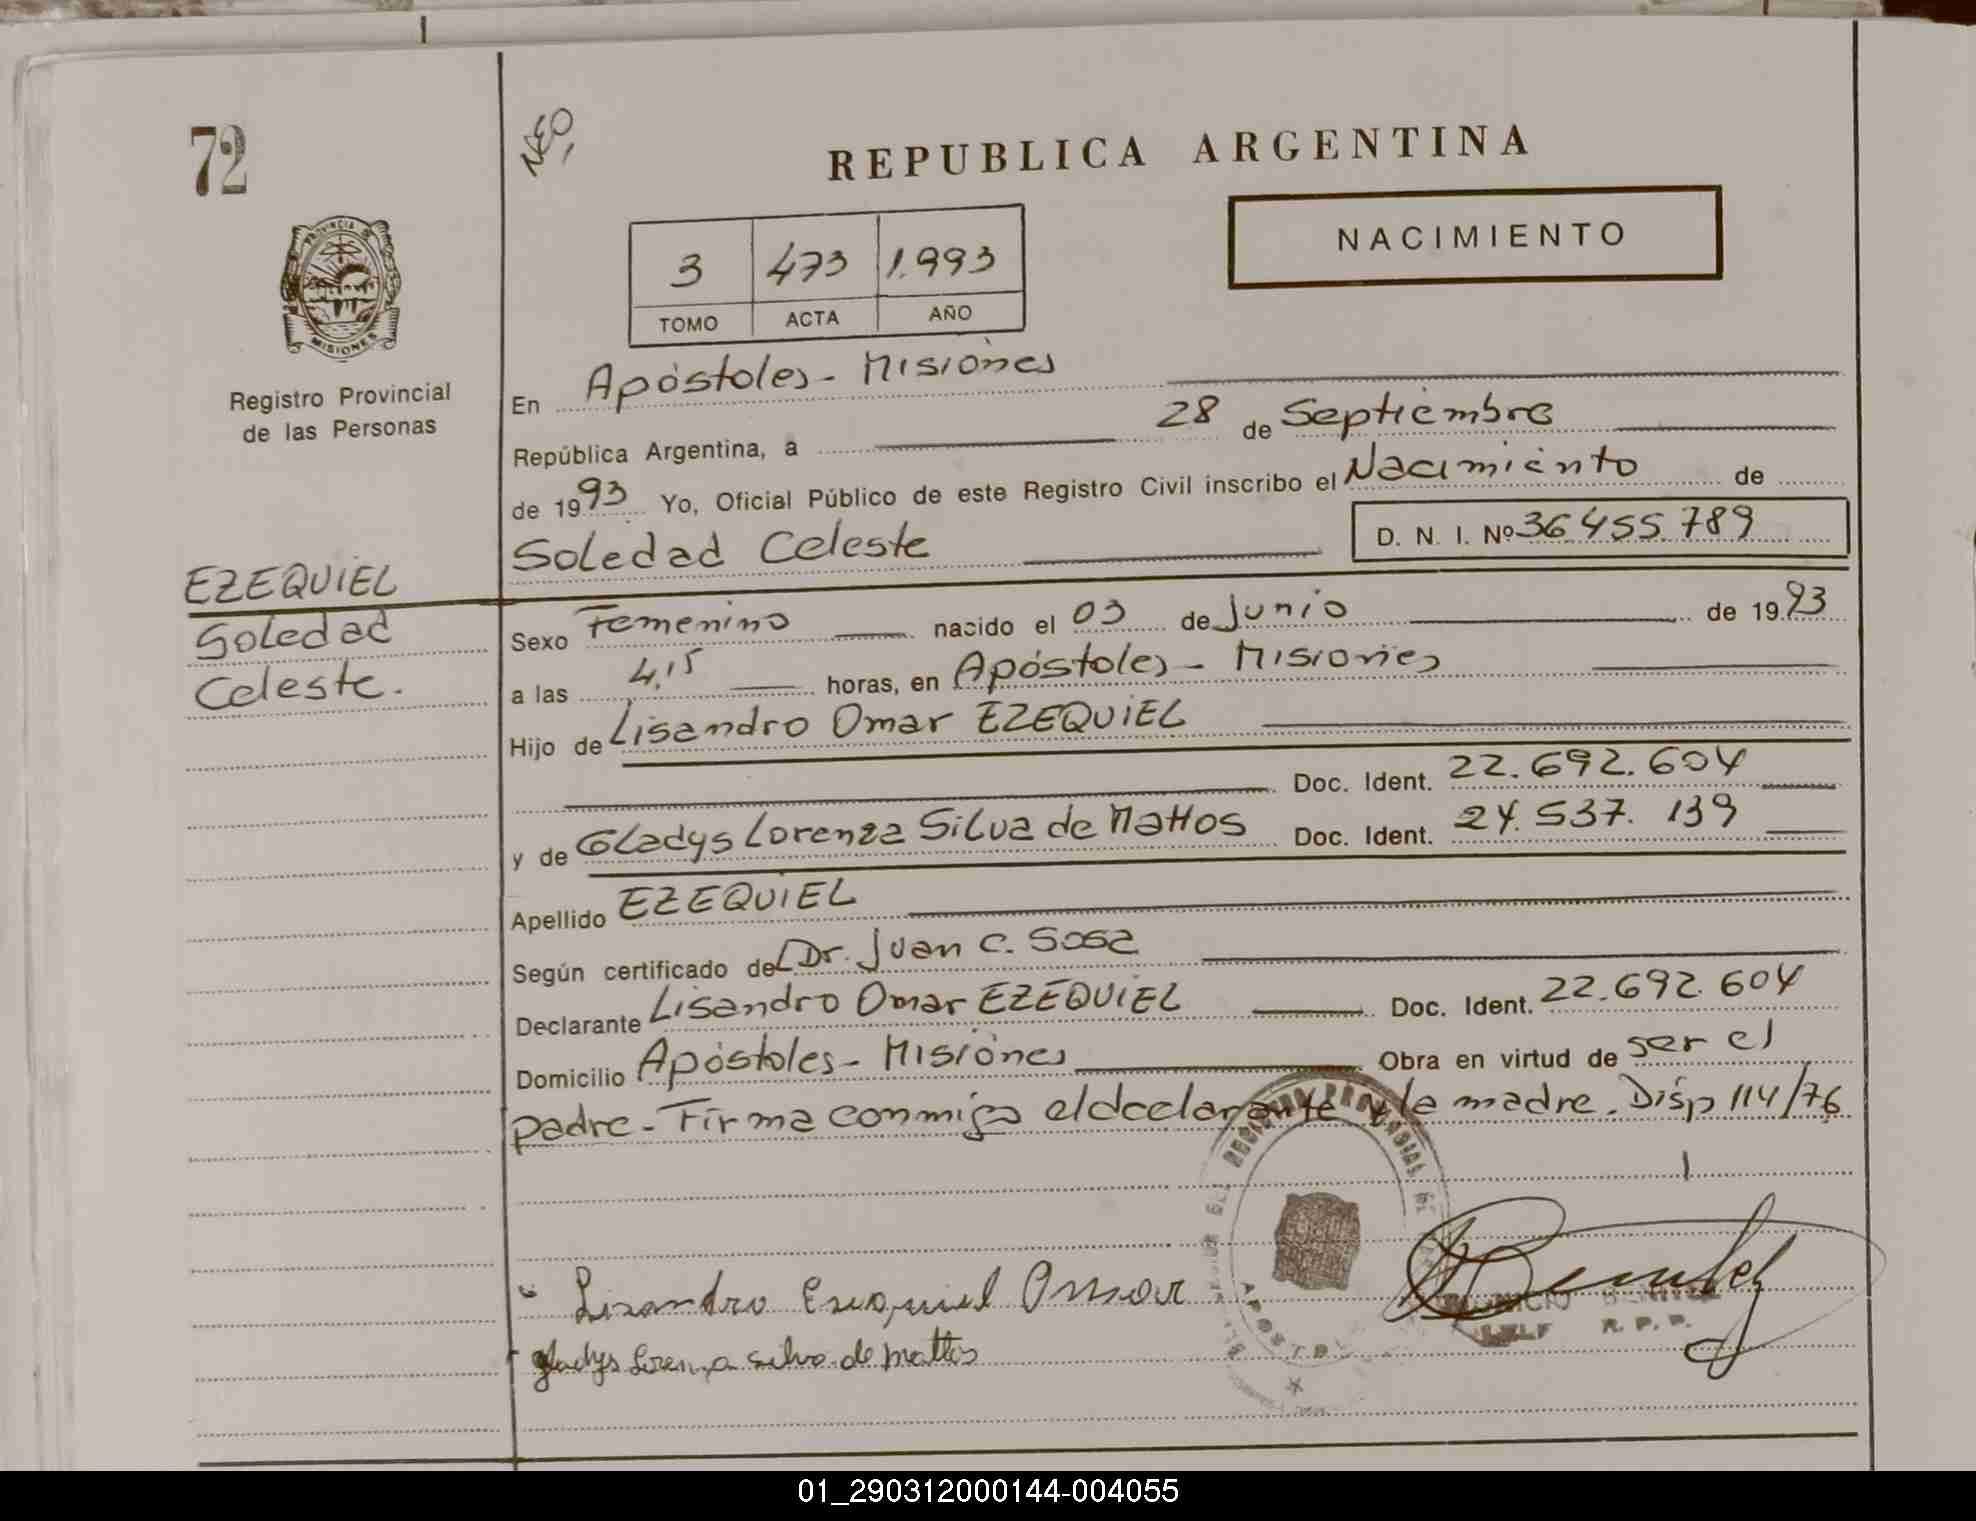 72
NEO,
REPUBLICA ARGENTINA
NACIMIENTO
3 473 1.993
TOMO ACTA AÑO
PROVINCIA DE
MISIONES
Registro Provincial
de las Personas
En Apóstoles - Misiones
República Argentina, a 28 de Septiembre
de 1993 Yo, Oficial Público de este Registro Civil inscribo el Nacimiento de
Soledad Celeste D. N. I. Nº 36.455.789
EZEQUIEL
Soledad
Celeste.
Sexo Femenino nacido el 03 de Junio de 1993
a las 4,15 horas, en Apóstoles - Misiones
Hijo de Lisandro Omar EZEQUIEL
Doc. Ident. 22.692.604
y de Gladys Lorenza Silva de Mattos Doc. Ident. 24.537.139
Apellido EZEQUIEL
Según certificado del Dr. Juan C. Sosa
Declarante Lisandro Omar EZEQUIEL Doc. Ident. 22.692.604
Domicilio Apóstoles - Misiones Obra en virtud de ser el
padre - Firma conmigo el declarante y la madre. Disp 114/76
Lisandro Esequiel Omar
gladys Lorenza silva de mattos
BENITEZ
R. P. P.
01_290312000144-004055